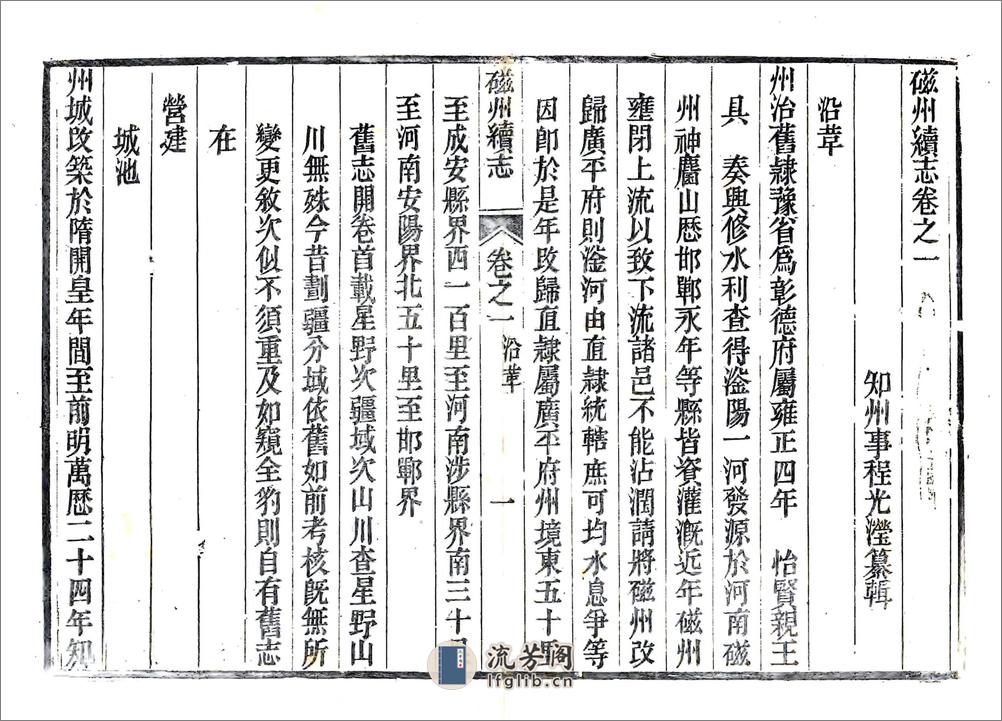 磁州續志卷之一
知州事程光瀅纂輯
沿革
州治舊隸豫省爲彰德府屬雍正四年 怡賢親王
具 奏興修水利查得滏陽一河發源於河南磁
州神麕山歷邯鄲永年等縣皆資灌漑近年磁州
壅閉上流以致下流諸邑不能沾潤請將磁州改
歸廣平府則滏河由直隸統轄庶可均水息爭等
因卽於是年改歸直隸屬廣平府州境東五十里
磁州續志 卷之一 沿革 一
至成安縣界西一百里至河南涉縣界南三十里
至河南安陽界北五十里至邯鄲界
舊志開卷首載星野次疆域次山川查星野山
川無殊今昔劃疆分域依舊如前考核旣無所
變更敘次似不須重及如窺全豹則自有舊志
在
營建
城池
州城改築於隋開皇年間至前明萬歷二十四年知
流芳阁
lfglib.cn